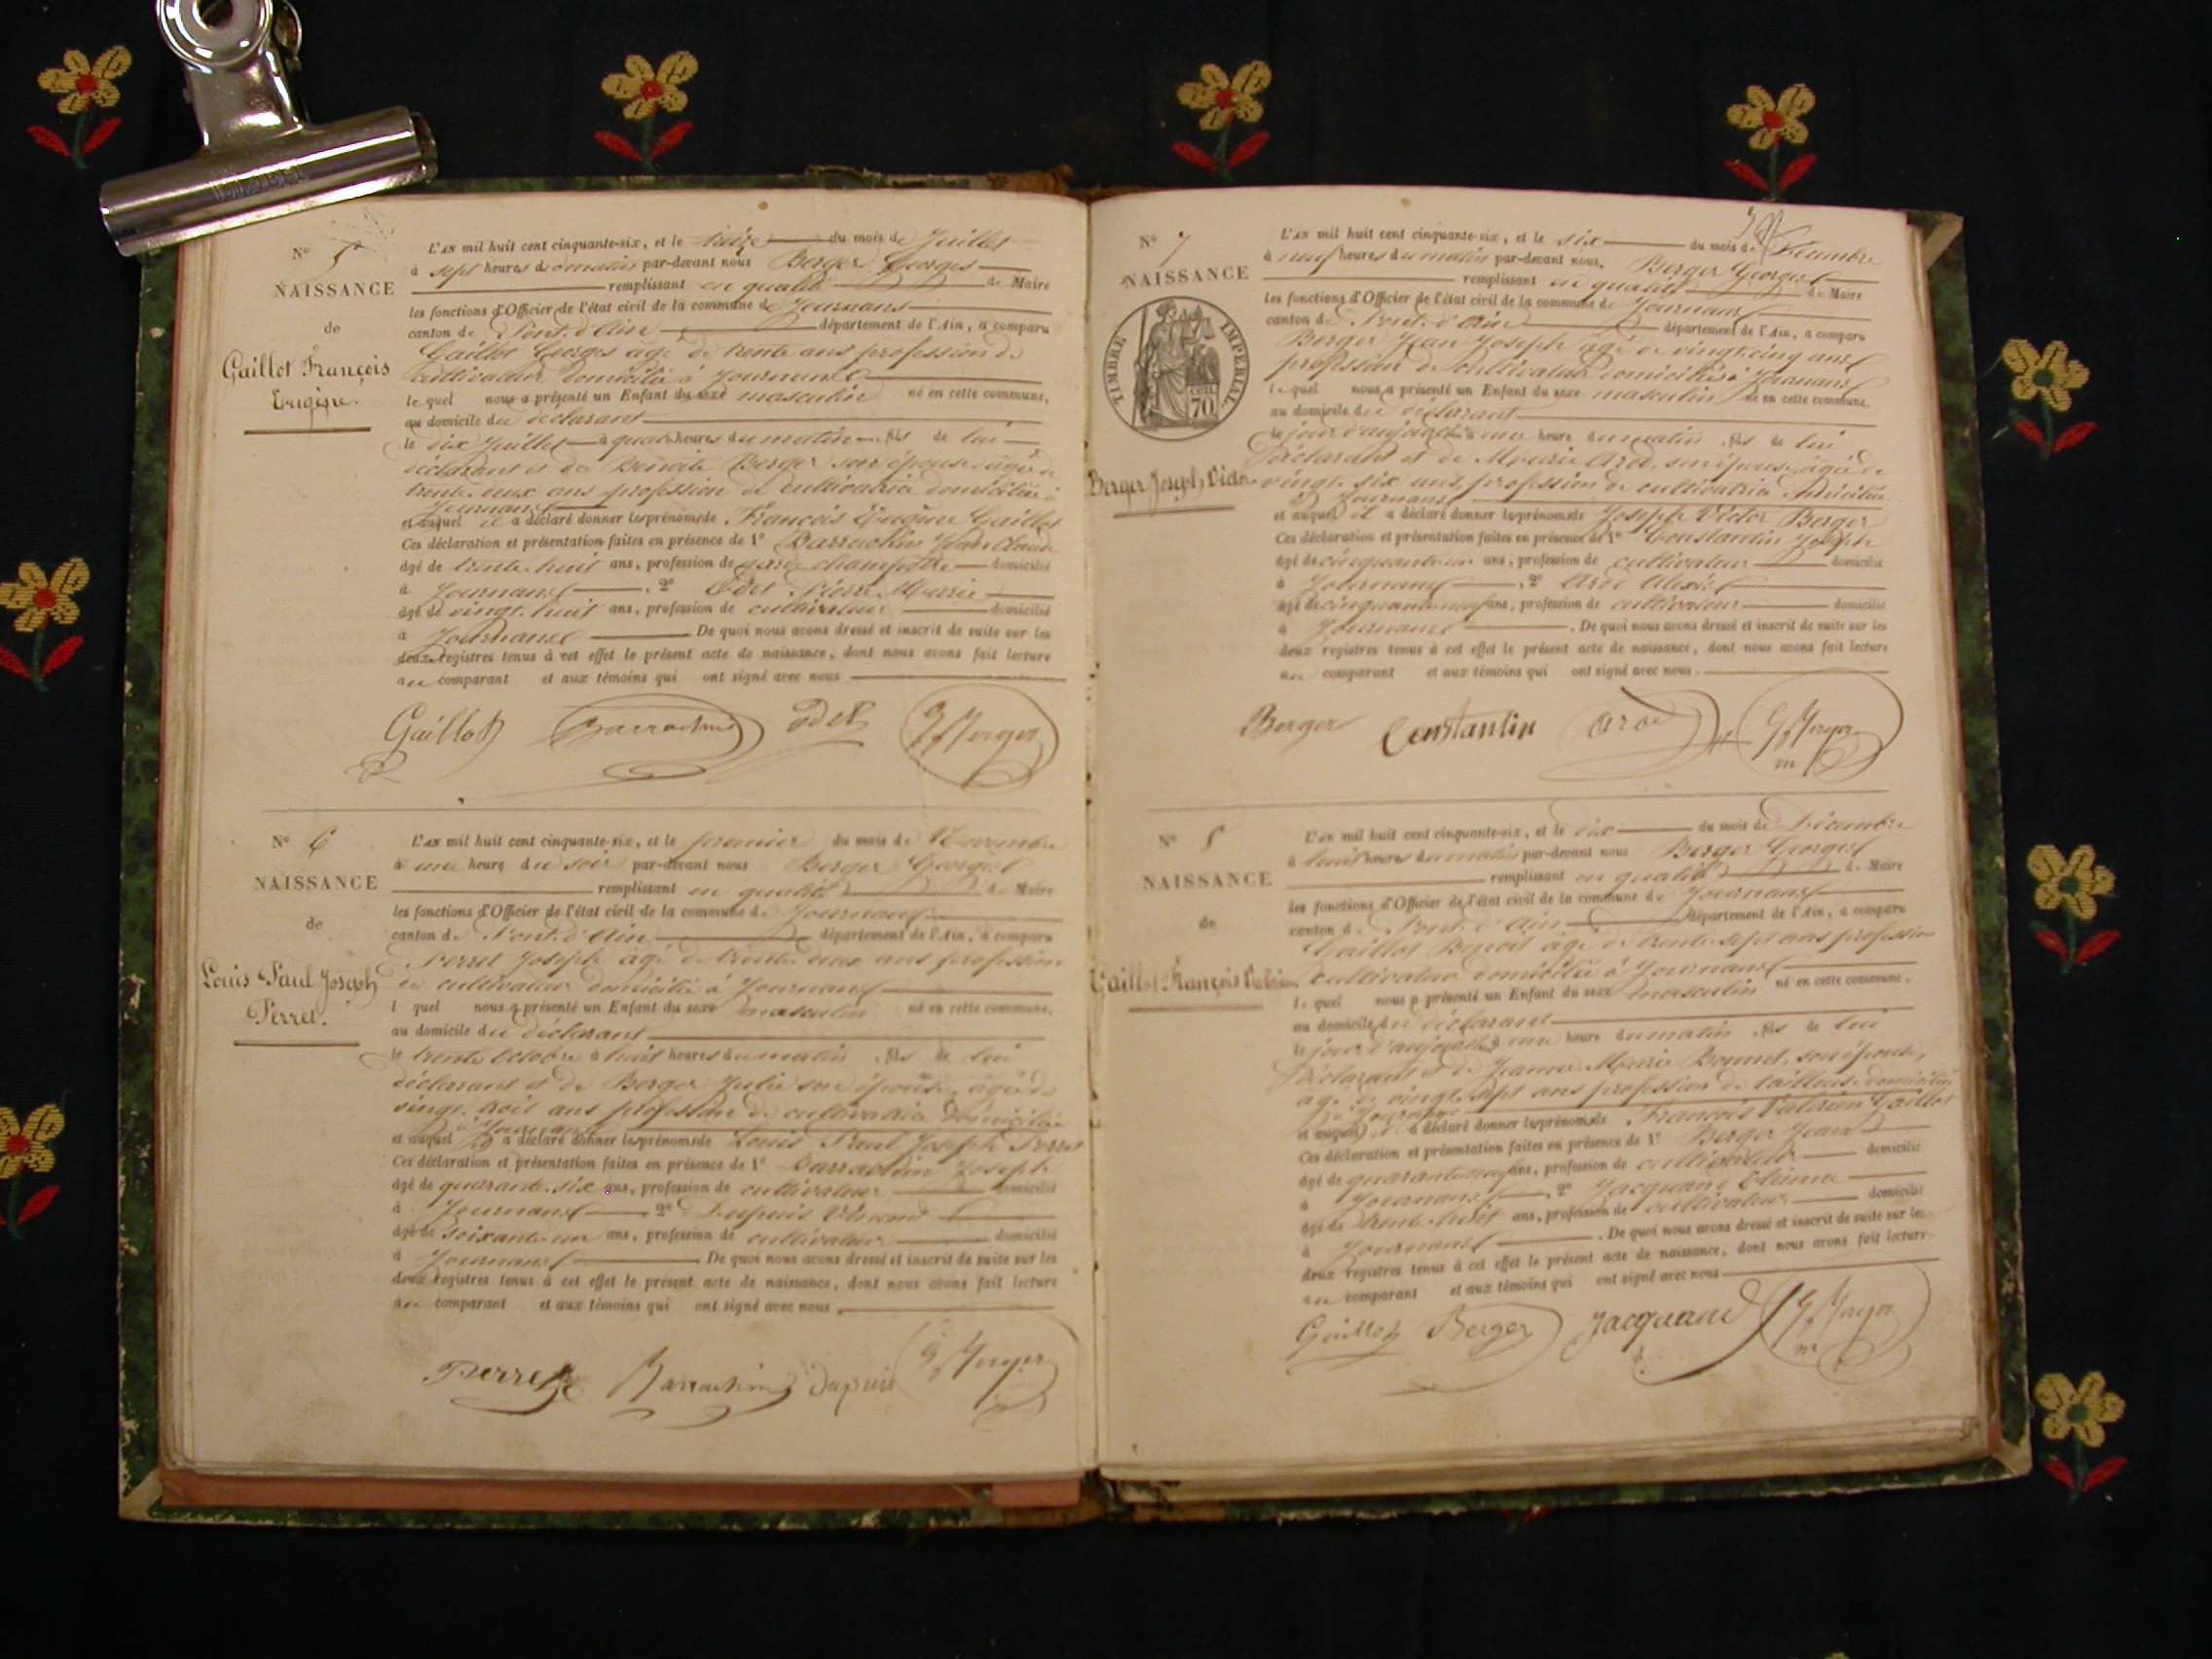 N° 5
NAISSANCE
de
Gaillot François
Eugène.
L'AN mil huit cent cinquante-six, et le du mois de Juillet
à sept heures du matin par-devant nous Berger Georges
remplissant en qualité de Maire
les fonctions d'Officier de l'état civil de la commune de Journans
canton de Pont-d'Ain département de l'Ain, a comparu
Gaillot Georges âgé de trente ans profession de
cultivateur domicilié à Journans
lequel nous a présenté un Enfant du sexe masculin né en cette commune,
au domicile du déclarant
le six Juillet à quatre heures du matin, fils de lui
déclarant et de Benoite Berger son épouse, âgée de
trente deux ans profession de cultivatrice domiciliée à
Journans
et auquel il a déclaré donner les prénoms de François Eugène Gaillot
Ces déclaration et présentation faites en présence de 1° Barrachin Jean Claude
âgé de trente-huit ans, profession de garde champêtre domicilié
à Journans, 2° Odet Pierre Marie
âgé de vingt-huit ans, profession de cultivateur domicilié
à Journans De quoi nous avons dressé et inscrit de suite sur les
deux registres tenus à cet effet le présent acte de naissance, dont nous avons fait lecture
au comparant et aux témoins qui ont signé avec nous
Gaillot Barrachin Odet G Berger
N° 6
NAISSANCE
de
Louis Paul Joseph
Perret.
L'AN mil huit cent cinquante-six, et le premier du mois de Novembre
à une heure du soir par-devant nous Berger Georges
remplissant en qualité de Maire
les fonctions d'Officier de l'état civil de la commune de Journans
canton de Pont-d'Ain département de l'Ain, a comparu
Perret Joseph âgé de trente deux ans profession
de cultivateur domicilié à Journans
lequel nous a présenté un Enfant du sexe masculin né en cette commune,
au domicile du déclarant
le trente Octobre à huit heures du matin, fils de lui
déclarant et de Berger Julie son épouse, âgée de
vingt-trois ans profession de cultivatrice domiciliée
à Journans
et auquel il a déclaré donner les prénoms de Louis Paul Joseph Perret
Ces déclaration et présentation faites en présence de 1° Barrachin Joseph
âgé de quarante-six ans, profession de cultivateur domicilié
à Journans, 2° Dupuis Vincent
âgé de soixante-un ans, profession de cultivateur domicilié
à Journans De quoi nous avons dressé et inscrit de suite sur les
deux registres tenus à cet effet le présent acte de naissance, dont nous avons fait lecture
au comparant et aux témoins qui ont signé avec nous.
Perret Barrachin Dupuis G Berger
N° 7
NAISSANCE
TIMBRE IMPERIAL
70
Berger Joseph Victor
L'AN mil huit cent cinquante-six, et le six du mois de Décembre
à neuf heures du matin par-devant nous, Berger Georges
remplissant en qualité de Maire
les fonctions d'Officier de l'état civil de la commune de Journans
canton de Pont-d'Ain département de l'Ain, a comparu
Berger Jean Joseph âgé de vingt-cinq ans
profession de cultivateur domicilié à Journans
lequel nous a présenté un Enfant du sexe masculin né en cette commune,
au domicile du déclarant
le jour d'aujourd'hui à une heure du matin, fils de lui
déclarant et de Marie Arod, son épouse, âgée de
vingt-six ans, profession de cultivatrice domiciliée
à Journans
et auquel il a déclaré donner les prénoms de Joseph Victor Berger
Ces déclaration et présentation faites en présence de 1° Constantin Joseph
âgé de cinquante-un ans, profession de cultivateur domicilié
à Journans, 2° Arod Alexis
âgé de cinquante-neuf ans, profession de cultivateur domicilié
à Journans. De quoi nous avons dressé et inscrit de suite sur les
deux registres tenus à cet effet le présent acte de naissance, dont nous avons fait lecture
au comparant et aux témoins qui ont signé avec nous.
Berger Constantin Arod G Berger
m
N° 8
NAISSANCE
de
Gaillot François Valérien
L'AN mil huit cent cinquante-six, et le dix du mois de Décembre
à huit heures du matin par-devant nous Berger Georges
remplissant en qualité de Maire
les fonctions d'Officier de l'état civil de la commune de Journans
canton de Pont-d'Ain département de l'Ain, a comparu
Gaillot Benoit âgé de trente-sept ans profession
cultivateur domicilié à Journans
lequel nous a présenté un Enfant du sexe masculin né en cette commune,
au domicile du déclarant
le jour d'aujourd'hui à une heure du matin, fils de lui
déclarant et de Jeanne Marie Bonnet, son épouse,
âgée de vingt-sept ans profession de tailleuse domiciliée
à Journans
et auquel il a déclaré donner les prénoms de François Valérien Gaillot
Ces déclaration et présentation faites en présence de 1° Berger Jean
âgé de ans, profession de cultivateur domicilié
à Journans, 2° Jacquand Etienne
âgé de trente-huit ans, profession de cultivateur domicilié
à Journans. De quoi nous avons dressé et inscrit de suite sur les
deux registres tenus à cet effet le présent acte de naissance, dont nous avons fait lecture
au comparant et aux témoins qui ont signé avec nous
Gaillot Berger Jacquand G Berger
m